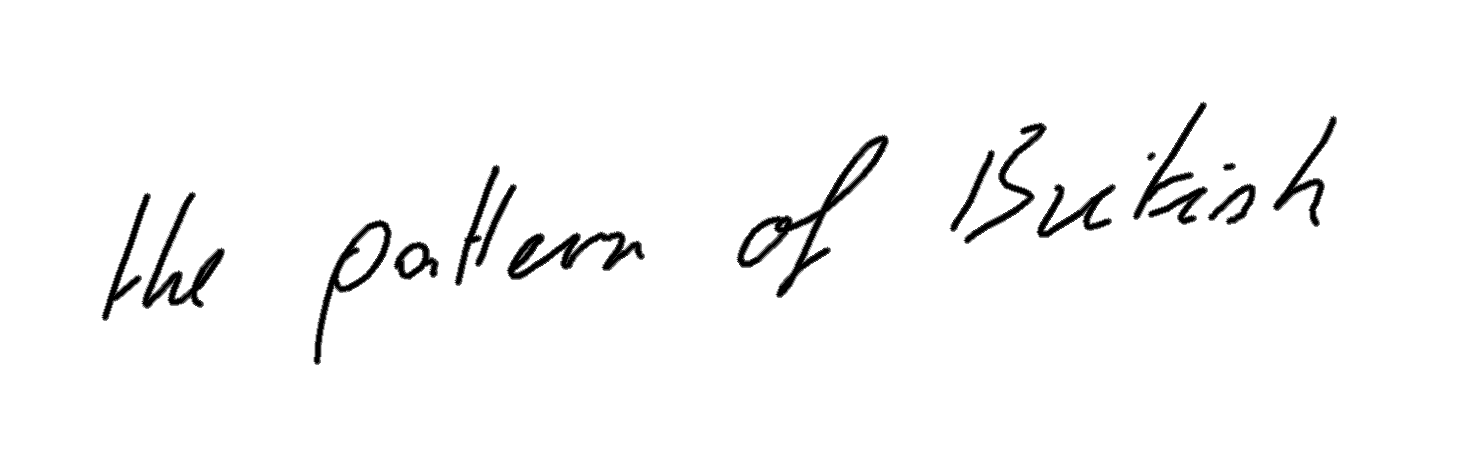 the pattern of British